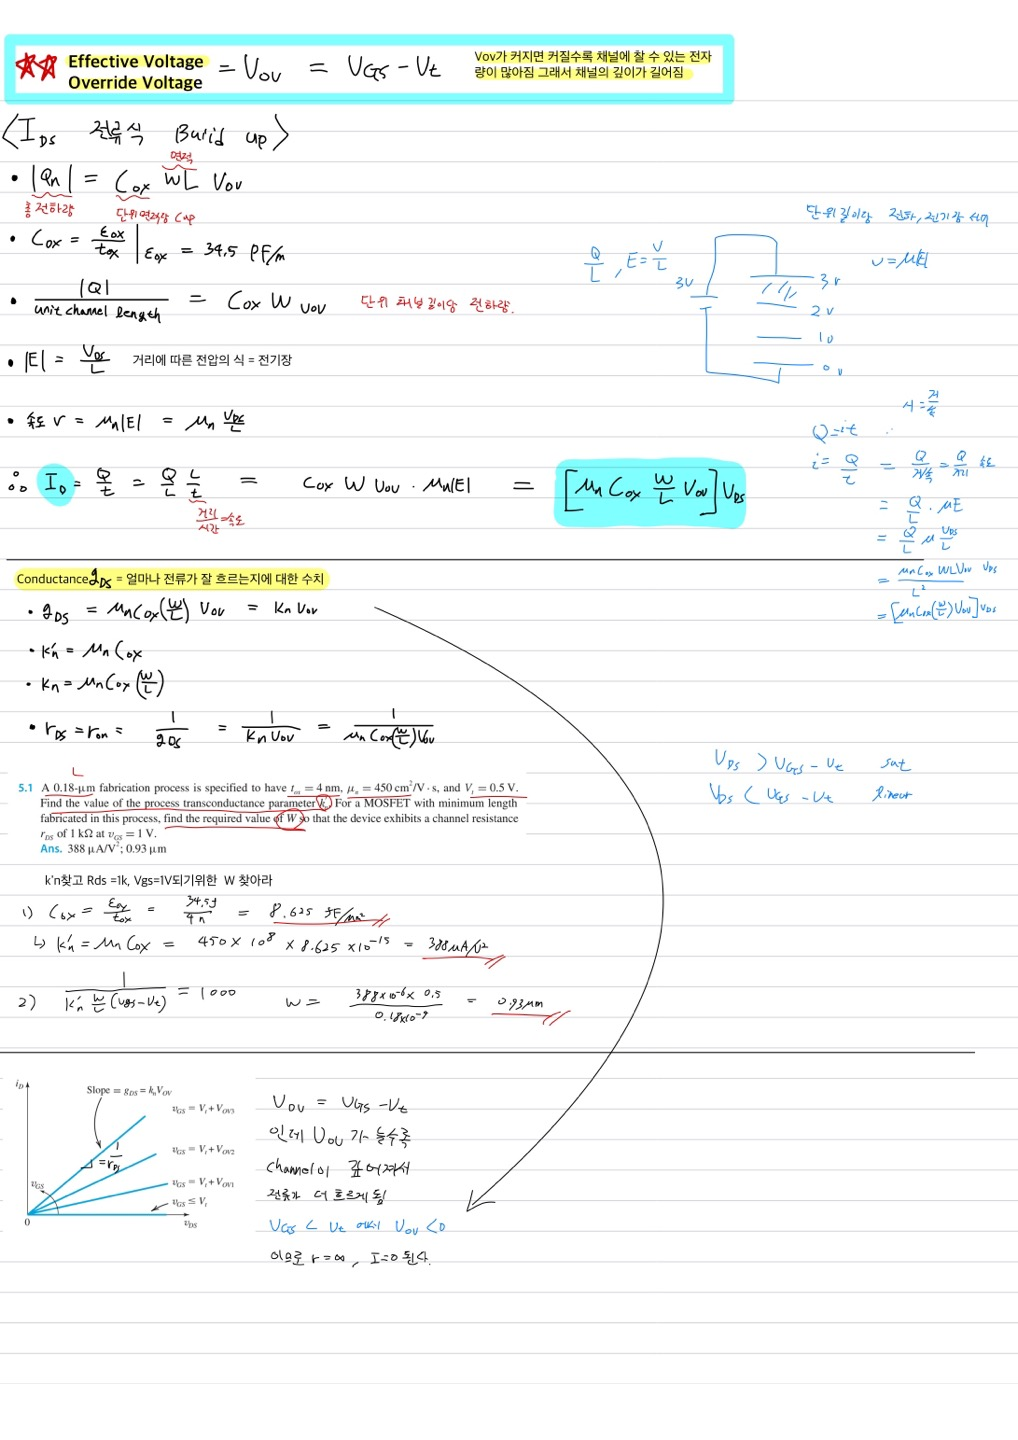 Effective Voltage
Override Voltage
= V_OV = V_GS - V_t
Vov가 커지면 커질수록 채널에 찰 수 있는 전자
량이 많아짐 그래서 채널의 깊이가 길어짐
<I_DS 전류식 Build up>
면적
• |Q_n| = C_ox WL V_OV
총 전하량
단위면적당 Cap
• C_ox = ε_ox/t_ox | ε_ox = 34.5 pF/m
• |Q| / unit channel length = C_ox W V_OV
단위 채널 길이당 전하량.
• |E| = V_DS/L
거리에 따른 전압의 식 = 전기장
• 속도 v = μ_n|E| = μ_n V_DS/L
∴ I_D = Q/t = Q/L L/t = C_ox W V_OV · μ_n|E| = [μ_n C_ox W/L V_OV] V_DS
거리/시간 = 속도
단위길이당 전하, 전기장 세기
Q/L , E = V/L
v = μ|E|
3V
3v
2v
1v
0v
시 = 거/속
Q = it
i = Q/t = Q/거/속 = Q/거리 속도
= Q/L · μE
= Q/L μ V_DS/L
= μ_n C_ox WL V_OV / L² V_DS
= [μ_n C_ox (W/L) V_OV] V_DS
Conductance g_DS = 얼마나 전류가 잘 흐르는지에 대한 수치
• g_DS = μ_n C_ox (W/L) V_OV = k_n V_OV
• k'_n = μ_n C_ox
• k_n = μ_n C_ox (W/L)
• r_DS = r_on = 1/g_DS = 1/k_n V_OV = 1/μ_n C_ox (W/L) V_OV
V_DS > V_GS - V_t sat
V_DS < V_GS - V_t linear
L
5.1 A 0.18-μm fabrication process is specified to have t_ox = 4 nm, μ_n = 450 cm²/V·s, and V_t = 0.5 V.
Find the value of the process transconductance parameter k'_n. For a MOSFET with minimum length
fabricated in this process, find the required value of W so that the device exhibits a channel resistance
r_DS of 1 kΩ at v_GS = 1 V.
Ans. 388 μA/V²; 0.93 μm
k'n찾고 Rds =1k, Vgs=1V되기위한 W 찾아라
1) C_ox = ε_ox/t_ox = 34.5p/4n = 8.625 fF/μm²
↳ k'_n = μ_n C_ox = 450 × 10⁸ × 8.625 × 10⁻¹⁵ = 388μA/V²
2) 1 / k'_n W/L (V_GS - V_t) = 1000
W = 388×10⁻⁶ × 0.5 / 0.18×10⁻⁹ = 0.93μm
i_D
Slope = g_DS = k_n V_OV
v_GS = V_t + V_OV3
v_GS = V_t + V_OV2
v_GS = V_t + V_OV1
v_GS ≤ V_t
= 1/r_DS
v_GS
0
v_DS
V_OV = V_GS - V_t
인데 V_OV 가 늘수록
channel이 깊어져서
전류가 더 흐르게 됨
V_GS < V_t 에서 V_OV < 0
이므로 r = ∞, I = 0 된다.